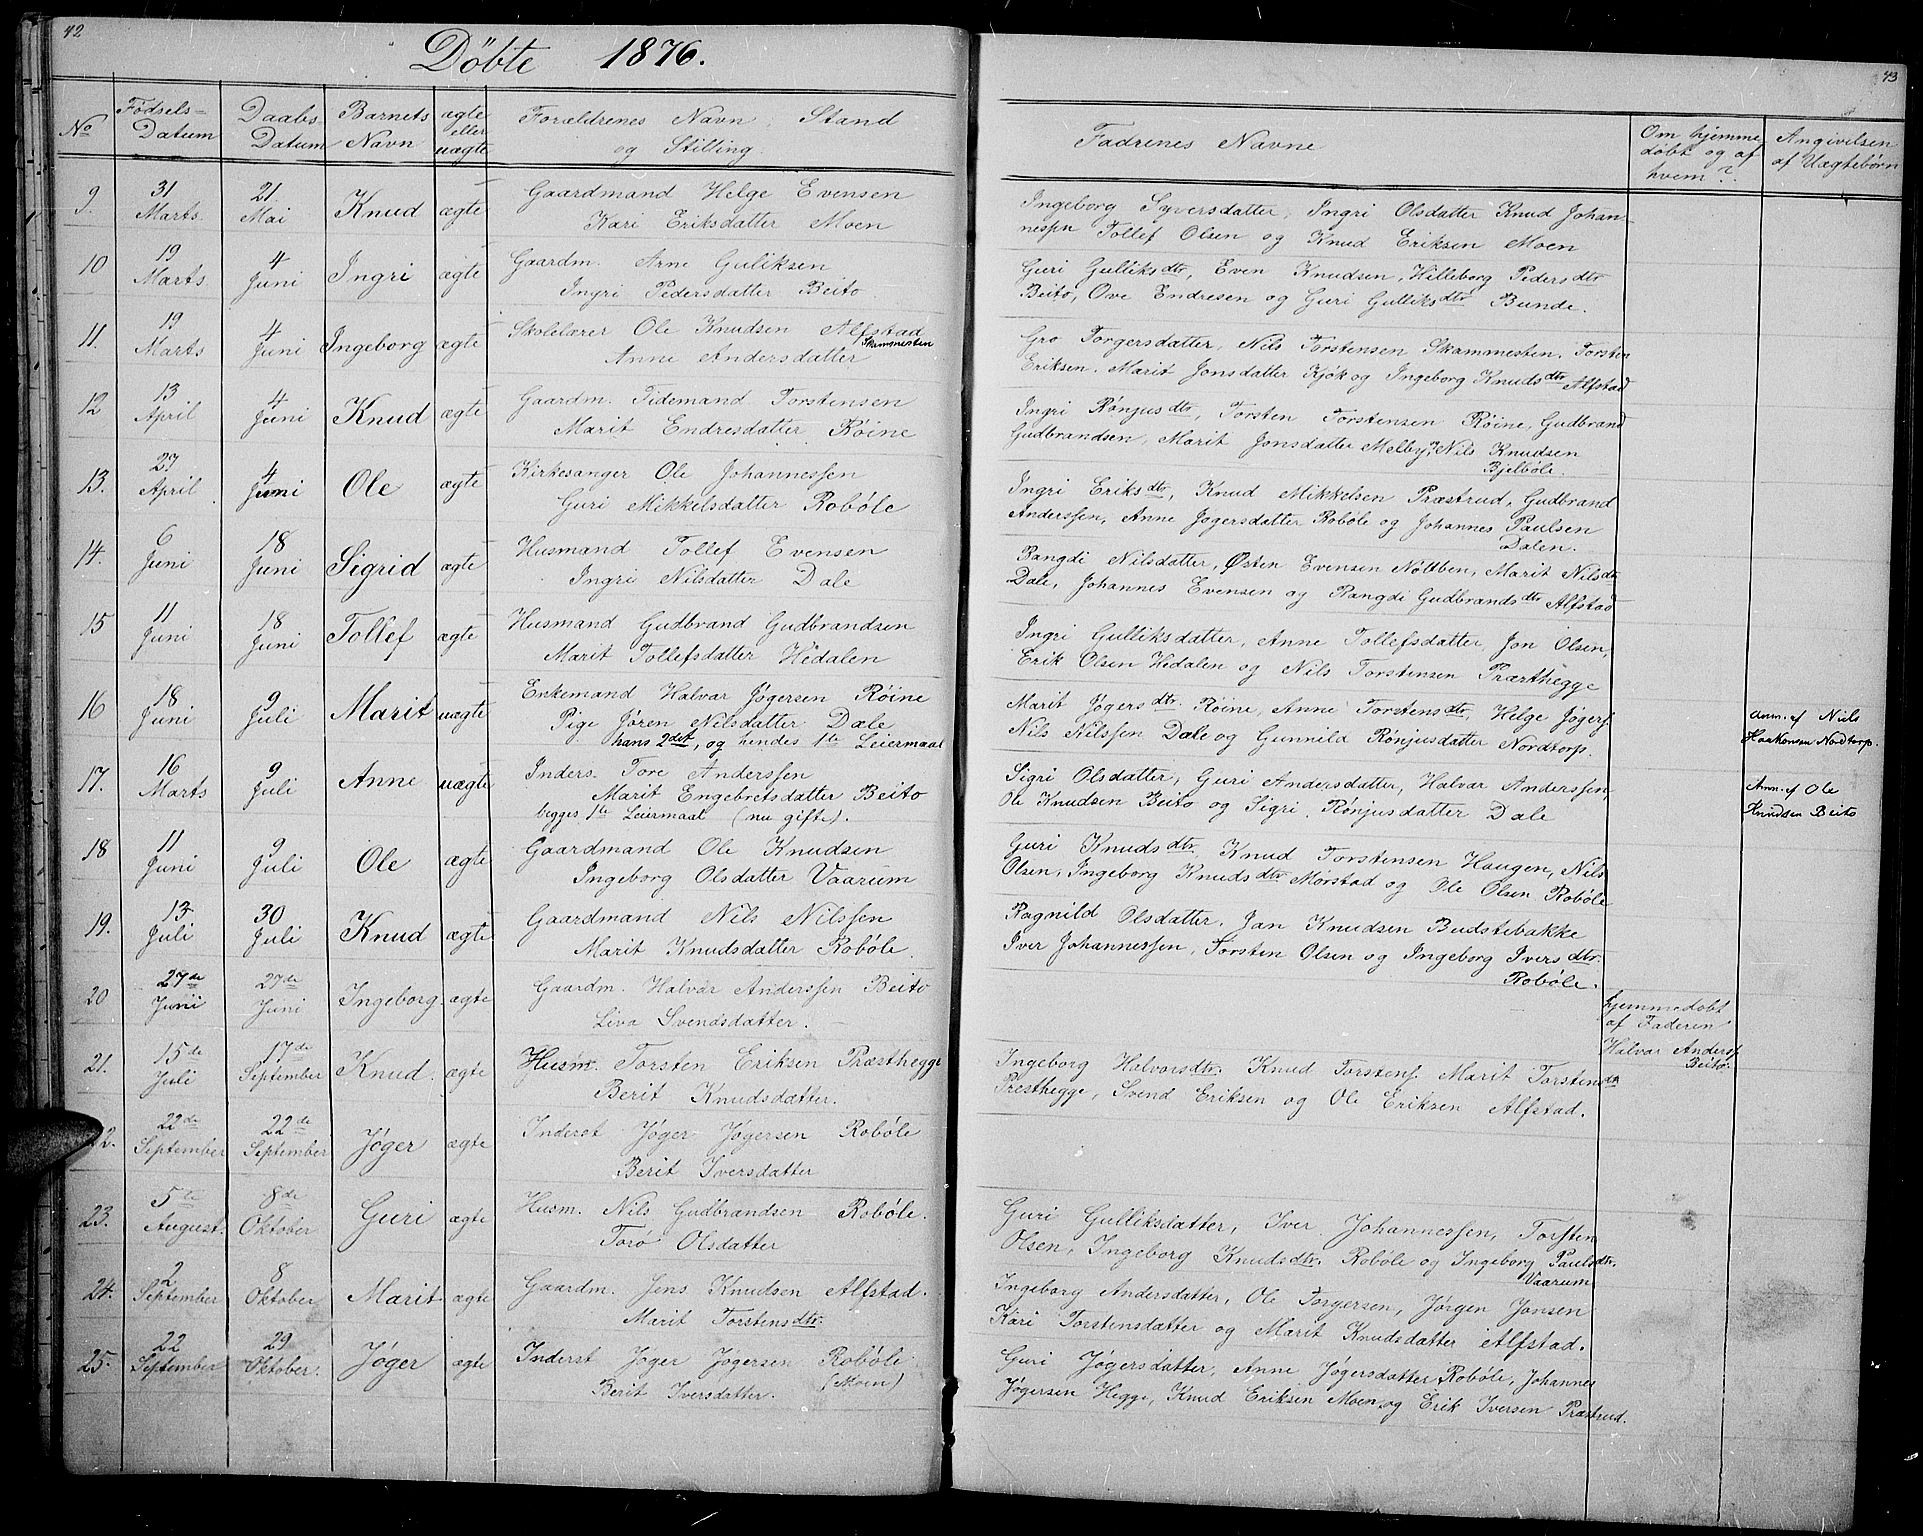 42
Döbte 1876.
No
Födsels-
Datum
Daabs-
Datum
Barnets
Navn
ægte
eller
uægte
Forældrenes Navn, Stand
og Stilling.
9.
31
Marts.
21.
Mai
Knud
ægte
Gaardmand Helge Evensen
Kari Eriksdatter Moen
10
19
Marts.
4
Juni
Ingri
ægte
Gaardm. Arne Guliksen
Ingri Pedersdatter Beito.
11.
19
Marts
4
Juni
Ingeborg
ægte
Skolelærer Ole Knudsen Alfstad
Skammesten
Anne Andersdatter
12
13
April
4
Juni
Knud
ægte
Gaardm. Tidemand Torstensen
Marit Endresdatter Röine
13.
27
April
4
Juni
Ole
ægte
Kirkesanger Ole Johannessen
Guri Mikkelsdatter Roböle
14.
6
Juni
18
Juni
Sigrid
ægte
Husmand Tollef Evensen
Ingri Nilsdatter Dale
15
11
Juni
18
Juni
Tollef
ægte
Husmand Gudbrand Gudbrandsen
Marit Tollefsdatter Hedalen
16
18
Juni
9
Juli
Marit
uægte
Enkemand Halvar Jögersen Röine
Pige Jören Nilsdatter Dale
hans 2det, og hendes 1te Leiermaal
17.
16
Marts
9
Juli
Anne
uægte
Inders. Tore Anderssen
Marit Engebretsdatter Beito
begges 1te Leiermaal (nu gifte).
18
11
Juni
9
Juli
Ole
ægte
Gaardmand Ole Knudsen
Ingeborg Olsdatter Vaarum
19.
13
Juli
30
Juli
Knud
ægte
Gaardmand Nils Nilssen
Marit Knudsdatter Roböle.
20
27de
Juni
27de
Juni
Ingeborg
ægte
Gaardm. Halvar Anderssen Beito
Liva Svendsdatter.
21.
15de
Juli
17de
September
Knud.
ægte
Husm. Torsten Eriksen Præsthegge
Berit Knudsdatter.
22.
22de
September
22de
September
Jöger
ægte
Inderst Jöger Jögersen Roböle
Berit Iversdatter
23.
5te
August.
8de
Oktober
Guri
ægte
Husm. Nils Gudbrandsen Roböle.
Torö Olsdatter
24.
2
September
8
Oktober
Marit
ægte
Gaardm. Jens Knudsen Alfstad.
Marit Torstensdtr.
25.
22
September
29
Oktober.
Jöger
ægte
Inderst Jöger Jögersen Roböle
(Moen)
Berit Iversdatter.
43
Fadrenes Navne
Om hjemme
döbt og af
hvem?
Angivelsen
af Uægtebörn
Ingeborg Syversdatter, Ingri Olsdatter Knud Johan-
nessen Tollef Olsen og Knud Eriksen Moen
Guri Gulliksdtr, Even Knudsen, Hilleborg Pedersdtr
Beito, Ove Endresen og Guri Gulliksdtr Bunde.
Gro Torgersdatter, Nils Torstensen Skammesten. Torsten
Eriksen. Marit Jonsdatter Kjök og Ingeborg Knudsdtr Alfstad
Ingri Rönjusdtr, Torsten Torstensen Röine, Gudbrand
Gudbrandsen, Marit Jonsdatter Melby, Nils Knudsen
Bjelböle.
Ingri Eriksdtr, Knud Mikkelsen Præstrud, Gudbrand
Anderssen, Anne Jögersdatter Roböle og Johannes Paulsen
Dalen.
Rangdi Nilsdatter, Østen Evensen Nöbben, Marit Nilsdtr
Dale, Johannes Evensen og Rangdi Gudbrandsdtr Alfstad
Ingri Gulliksdatter, Anne Tollefsdatter Jon Olsen,
Erik Olsen Hedalen og Nils Torstensen Præsthegge
Marit Jögersdtr. Röine, Anne Torstensdtr, Helge Jögers.
Nils Nilssen Dale og Gunnild Rönjusdatter Nordtorp.
Anm. af Niels
Haakensen Nordtorp.
Sigri Olsdatter, Guri Andersdatter, Halvar Anderssen,
Ole Knudsen Beito og Sigri Rönjusdatter Dale
Anm. af Ole
Knudsen Beito
Guri Knudsdtr. Knud Torstensen Haugen, Nils
Olsen, Ingeborg Knudsdtr Mörstad og Ole Olsen Roböle
Ragnild Olsdatter, Jan Knudsen Budstebakke
Iver Johannessen, Torsten Olsen og Ingeborg Iversdtr.
Roböle.
hjemmedöbt
af Faderen
Halvar Anders.
Beito.
Ingeborg Halvorsdtr. Knud Torstens. Marit Torstensdtr
Presthegge, Svend Eriksen og Ole Eriksen Alfstad.
Guri Gulliksdatter, Iver Johannessen, Torsten
Olsen, Ingeborg Knudsdtr. Roböle og Ingeborg Paulsdtr.
Vaarum
Ingeborg Andersdatter, Ole Torgersen, Jörgen Jonsen
Kari Torstensdatter og Marit Knudsdatter Alfstad.
Guri Jögersdatter, Anne Jögersdatter Roböle, Johannes
Jögersen Hegge, Knud Eriksen Moen og Erik Iversen Præstrud.